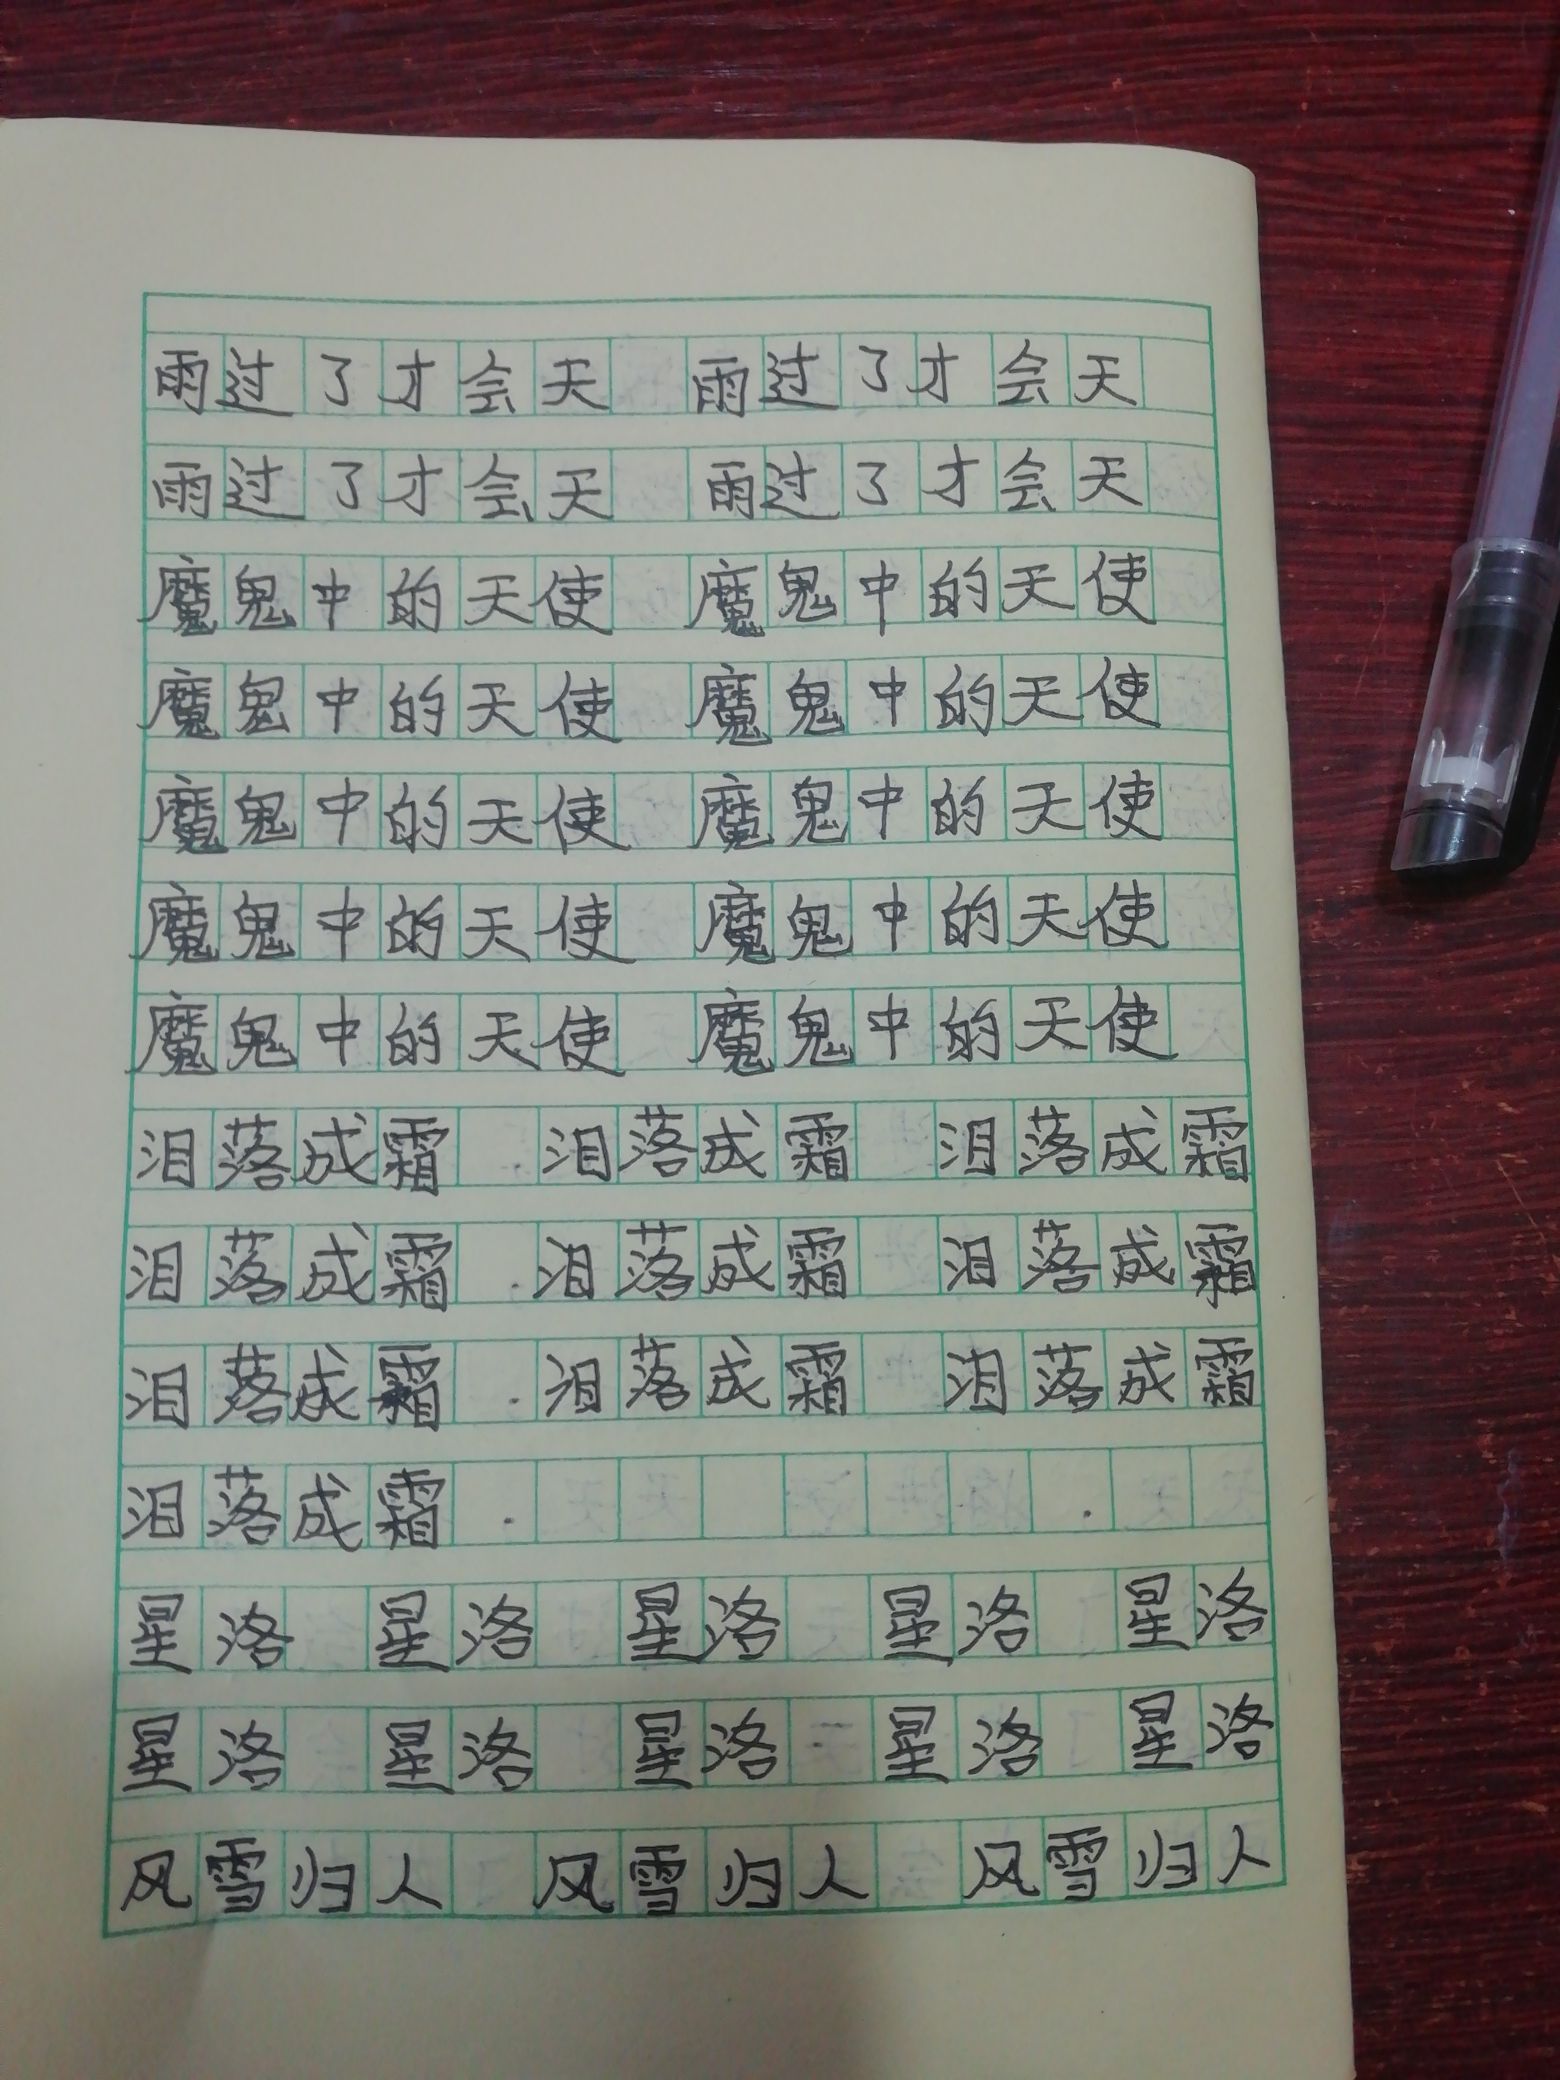 雨过了才会天 雨过了才会天
雨过了才会天 雨过了才会天
魔鬼中的天使 魔鬼中的天使
魔鬼中的天使 魔鬼中的天使
魔鬼中的天使 魔鬼中的天使
魔鬼中的天使 魔鬼中的天使
魔鬼中的天使 魔鬼中的天使
泪落成霜 泪落成霜 泪落成霜
泪落成霜 泪落成霜 泪落成霜
泪落成霜 泪落成霜 泪落成霜
泪落成霜
星洛 星洛 星洛 星洛 星洛
星洛 星洛 星洛 星洛 星洛
风雪归人 风雪归人 风雪归人